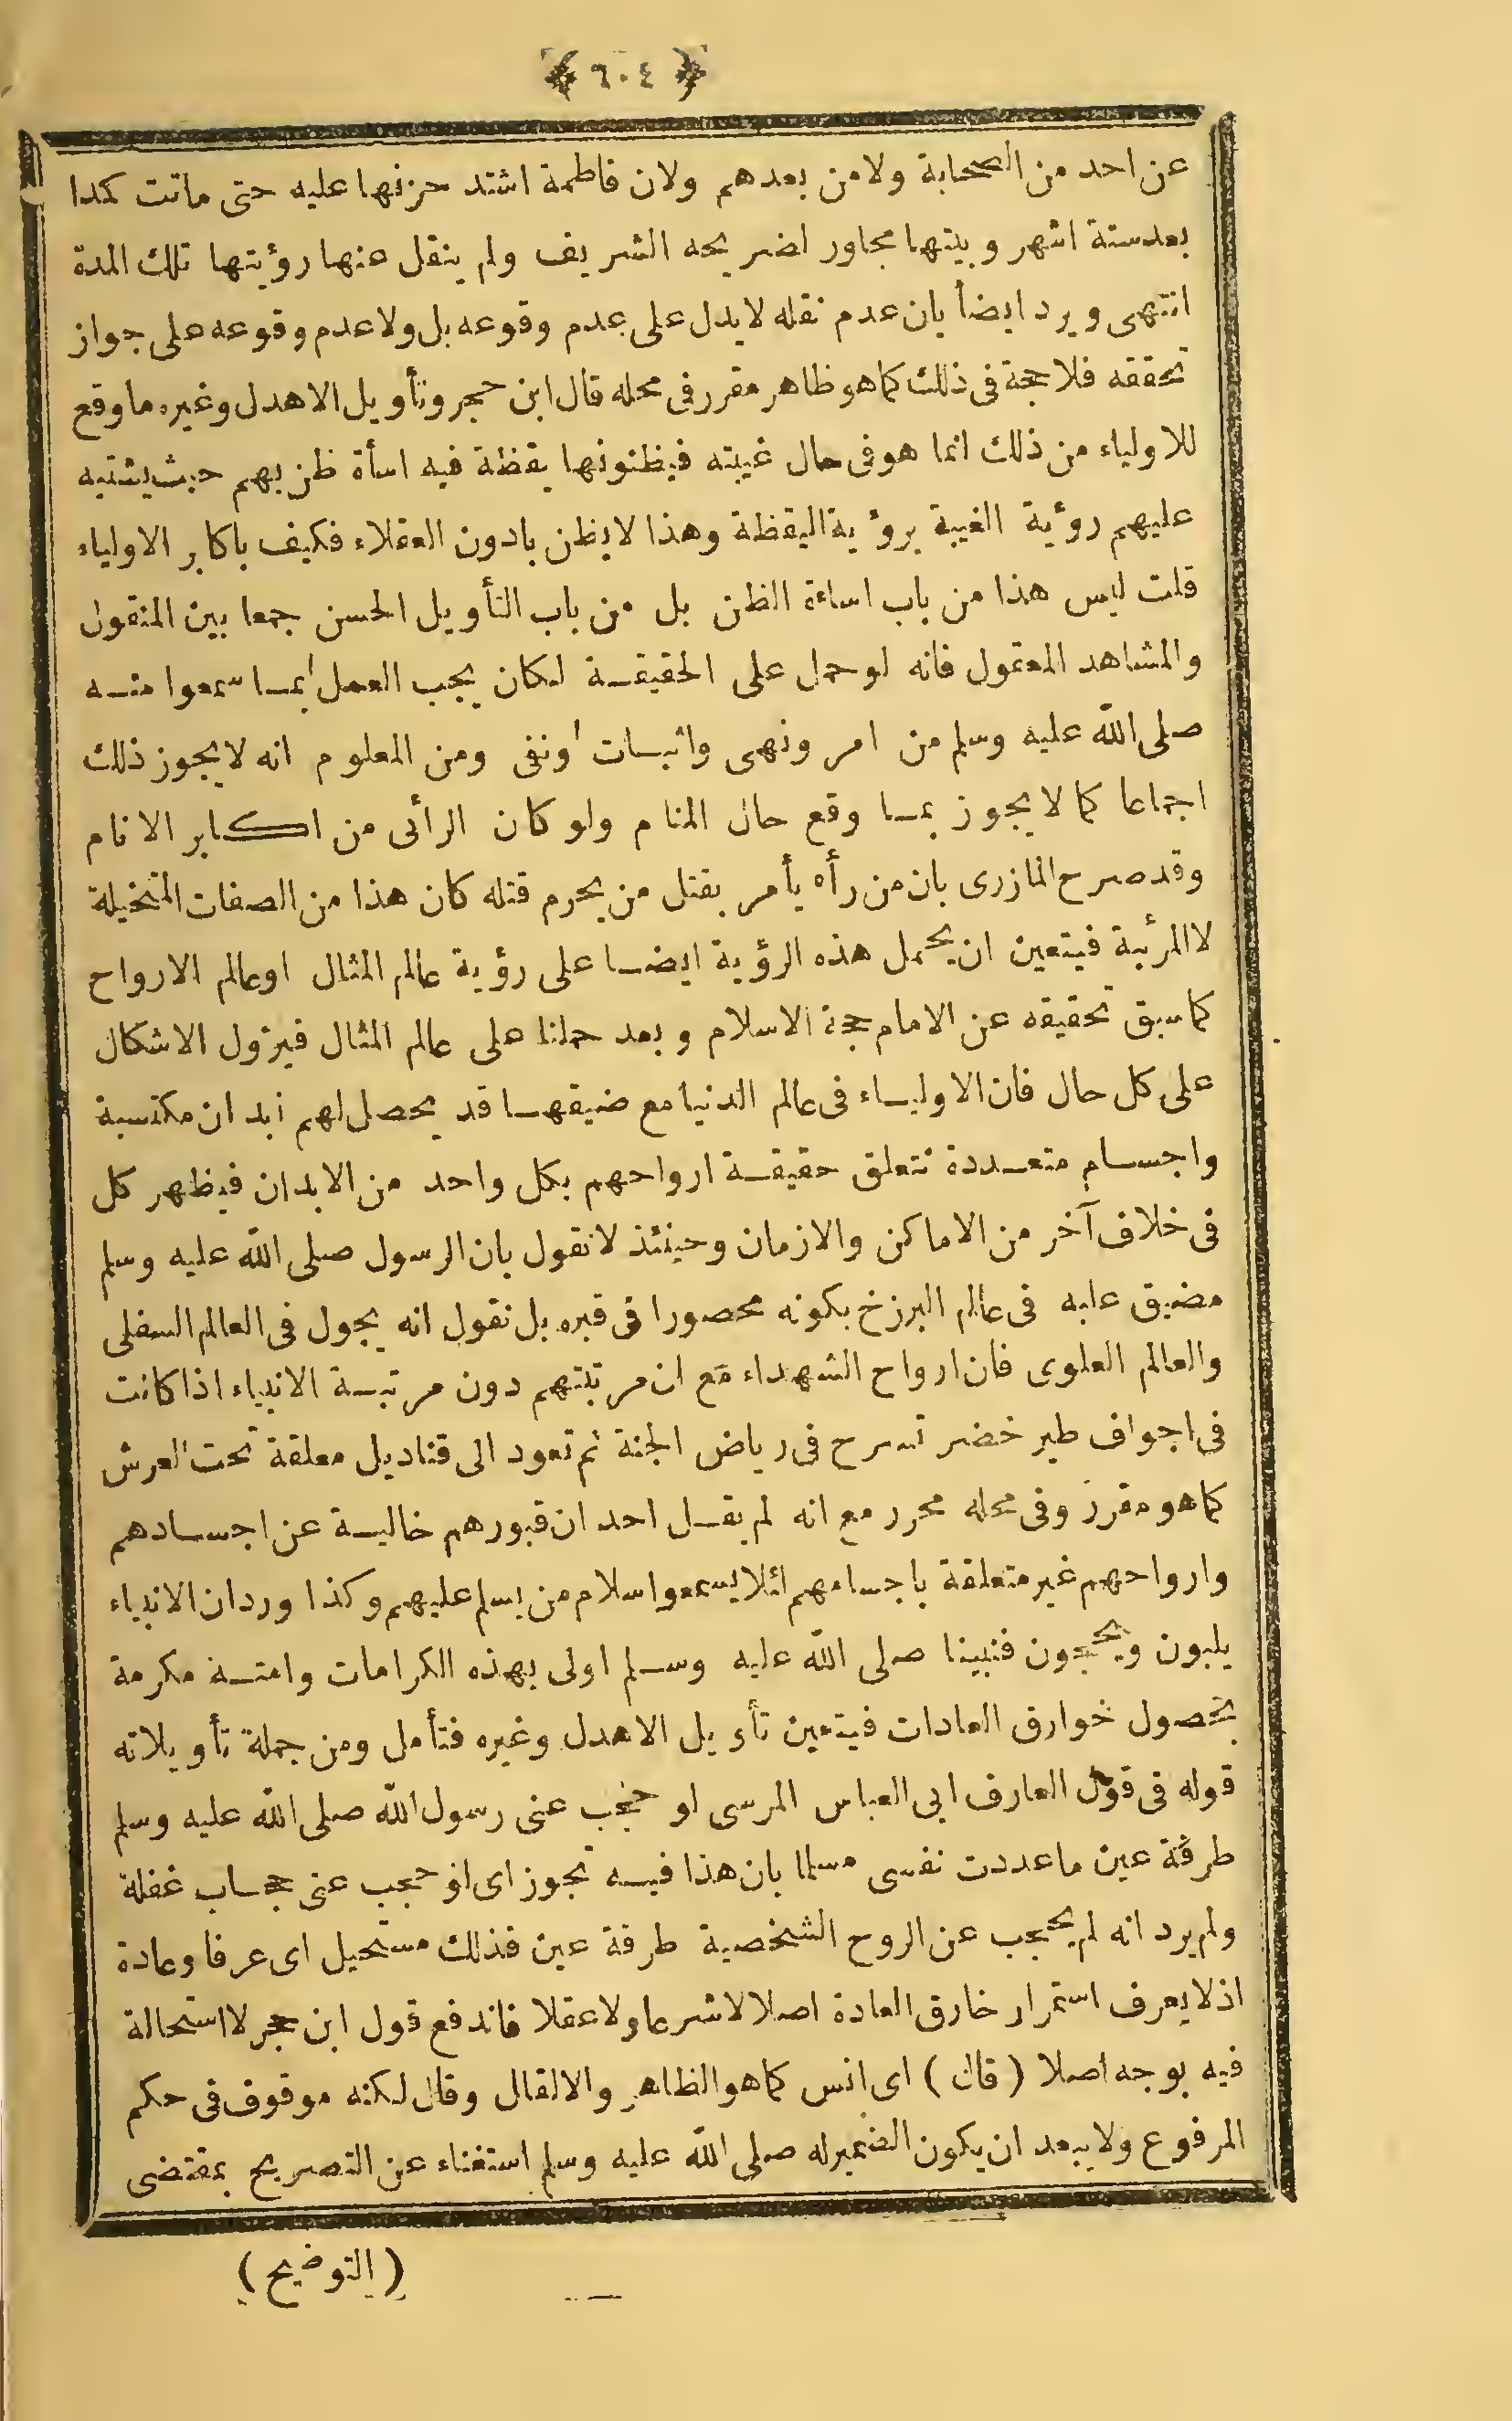 ﴿ ٦٠٤ ﴾
عن احد من الصحابة ولا من بعدهم ولان فاطمة اشتد حزنها عليه حتى ماتت كمدا
بعد ستة اشهر وبيتها مجاور لضريحه الشريف ولم ينقل عنها رؤيتها تلك المدة
انتهى ويرد ايضأ بان عدم نقله لا يدل على عدم وقوعه بل ولا عدم وقوعه على جواز
تحققه فلا حجة فى ذلك كما هو ظاهر مقرر فى محله قال ابن حجر وتأويل الاهدل وغيره ما وقع
للاولياء من ذلك انما هو فى حال غيبته فيظنونها يقظة فيه اسأة ظن بهم حيث يشتبه
عليهم رؤية الغيبة برؤية اليقظة وهذا لا يظن بادون العقلاء فكيف باكابر الاولياء
قلت ليس هذا من باب اساءة الظن بل من باب التأويل الحسن جمعا بين المنقول
والمشاهد المعقول فانه لو حمل على الحقيقة لكان يجب العمل بما سمعوا منه
صلى الله عليه وسلم من امر ونهى واثبات اونفى ومن المعلوم انه لا يجوز ذلك
اجماعا كما لا يجوز بما وقع حال المنام ولو كان الرأئى من اكابر الانام
وقد صرح المازرى بان من رأه يأمر بقتل من يحرم قتله كان هذا من الصفات المتخيلة
لا المرئية فيتعين ان يحمل هذه الرؤية ايضا على رؤية عالم المثال او عالم الارواح
كما سبق تحقيقه عن الامام حجة الاسلام وبعد حملنا على عالم المثال فيزول الاشكال
على كل حال فان الاولياء فى عالم الدنيا مع ضيقها قد يحصل لهم ابدان مكتسبة
واجسام متعددة تتعلق حقيقة ارواحهم بكل واحد من الابدان فيظهر كل
فى خلاف آخر من الاماكن والازمان وحينئذ لا نقول بان الرسول صلى الله عليه وسلم
مضيق عليه فى عالم البرزخ بكونه محصورا فى قبره بل نقول انه يجول فى العالم السفلى
والعالم العلوى فان ارواح الشهداء مع ان مرتبتهم دون مرتبة الانبياء اذا كانت
فى اجواف طير خضر تسرح فى رياض الجنة ثم تعود الى قناديل معلقة تحت العرش
كما هو مقرر وفى محله محرر مع انه لم يقل احد ان قبورهم خالية عن اجسادهم
وارواحهم غير متعلقة باجسامهم لئلا يسمعوا سلام من يسلم عليهم وكذا ورد ان الانبياء
يلبون ويحجون فنبينا صلى الله عليه وسلم اولى بهذه الكرامات وامته مكرمة
بحصول خوارق العادات فيتعين تأويل الاهدل وغيره فتأمل ومن جملة تأويلاته
قوله فى قول العارف ابى العباس المرسى لو حجب عنى رسول الله صلى الله عليه وسلم
طرفة عين ما عددت نفسى مسلما بان هذا فيه تجوز اى لو حجب عنى حجاب غفلة
ولم يرد انه لم يحجب عن الروح الشخصية طرفة عين فذلك مستحيل اى عرفا وعادة
اذ لا يعرف استمرار خارق العادة اصلا لا شرعا ولا عقلا فاندفع قول ابن حجر لا استحالة
فيه بوجه اصلا ( قال ) اى انس كما هو الظاهر والا لقال وقال لكنه موقوف فى حكم
المرفوع ولا يبعد ان يكون الضمير له صلى الله عليه وسلم استغناء عن التصريح بمقتضى
( التوضيح )